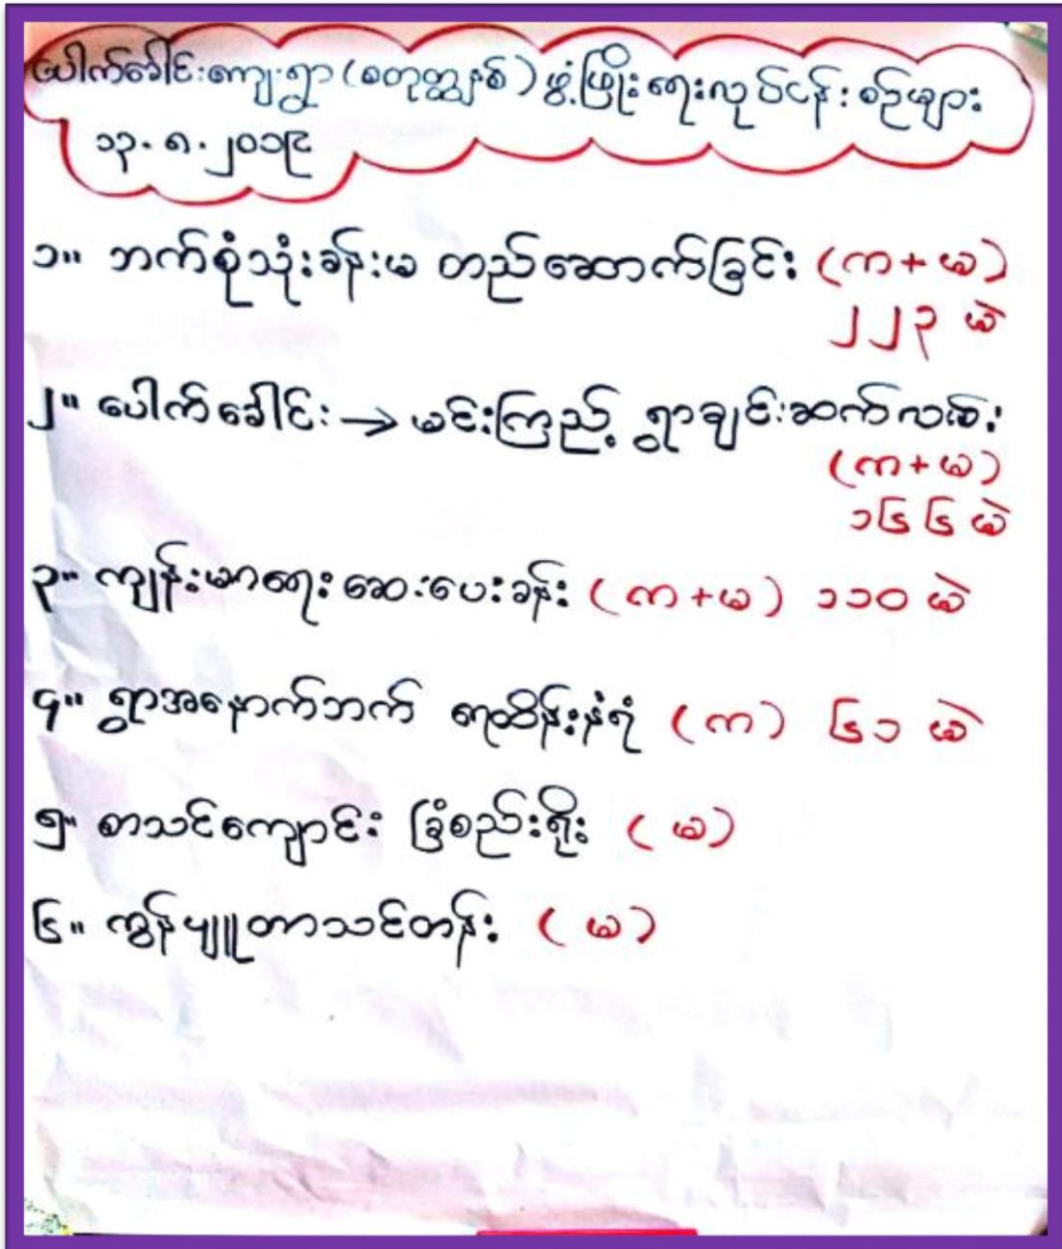 ပေါက်ခေါင်းကျေးရွာ (စတုတ္ထနှစ်) ဖွံ့ဖြိုးရေးလုပ်ငန်းစဉ်များ
၁၃.၈.၂၀၁၉
၁။ ဘက်စုံသုံးခန်းမ တည်ဆောက်ခြင်း (က+မ)
၂၂၃ မဲ
၂။ ပေါက်ခေါင်း → မင်းကြည့် ရွာချင်းဆက်လမ်း
(က+မ)
၁၆၆ မဲ
၃။ ကျန်းမာရေး ဆေးပေးခန်း (က+မ) ၁၁၀ မဲ
၄။ ရွာအနောက်ဘက် ရေထိန်းနံရံ (က) ၆၁ မဲ
၅။ စာသင်ကျောင်း ခြံစည်းရိုး (မ)
၆။ ကွန်ပျူတာသင်တန်း (မ)